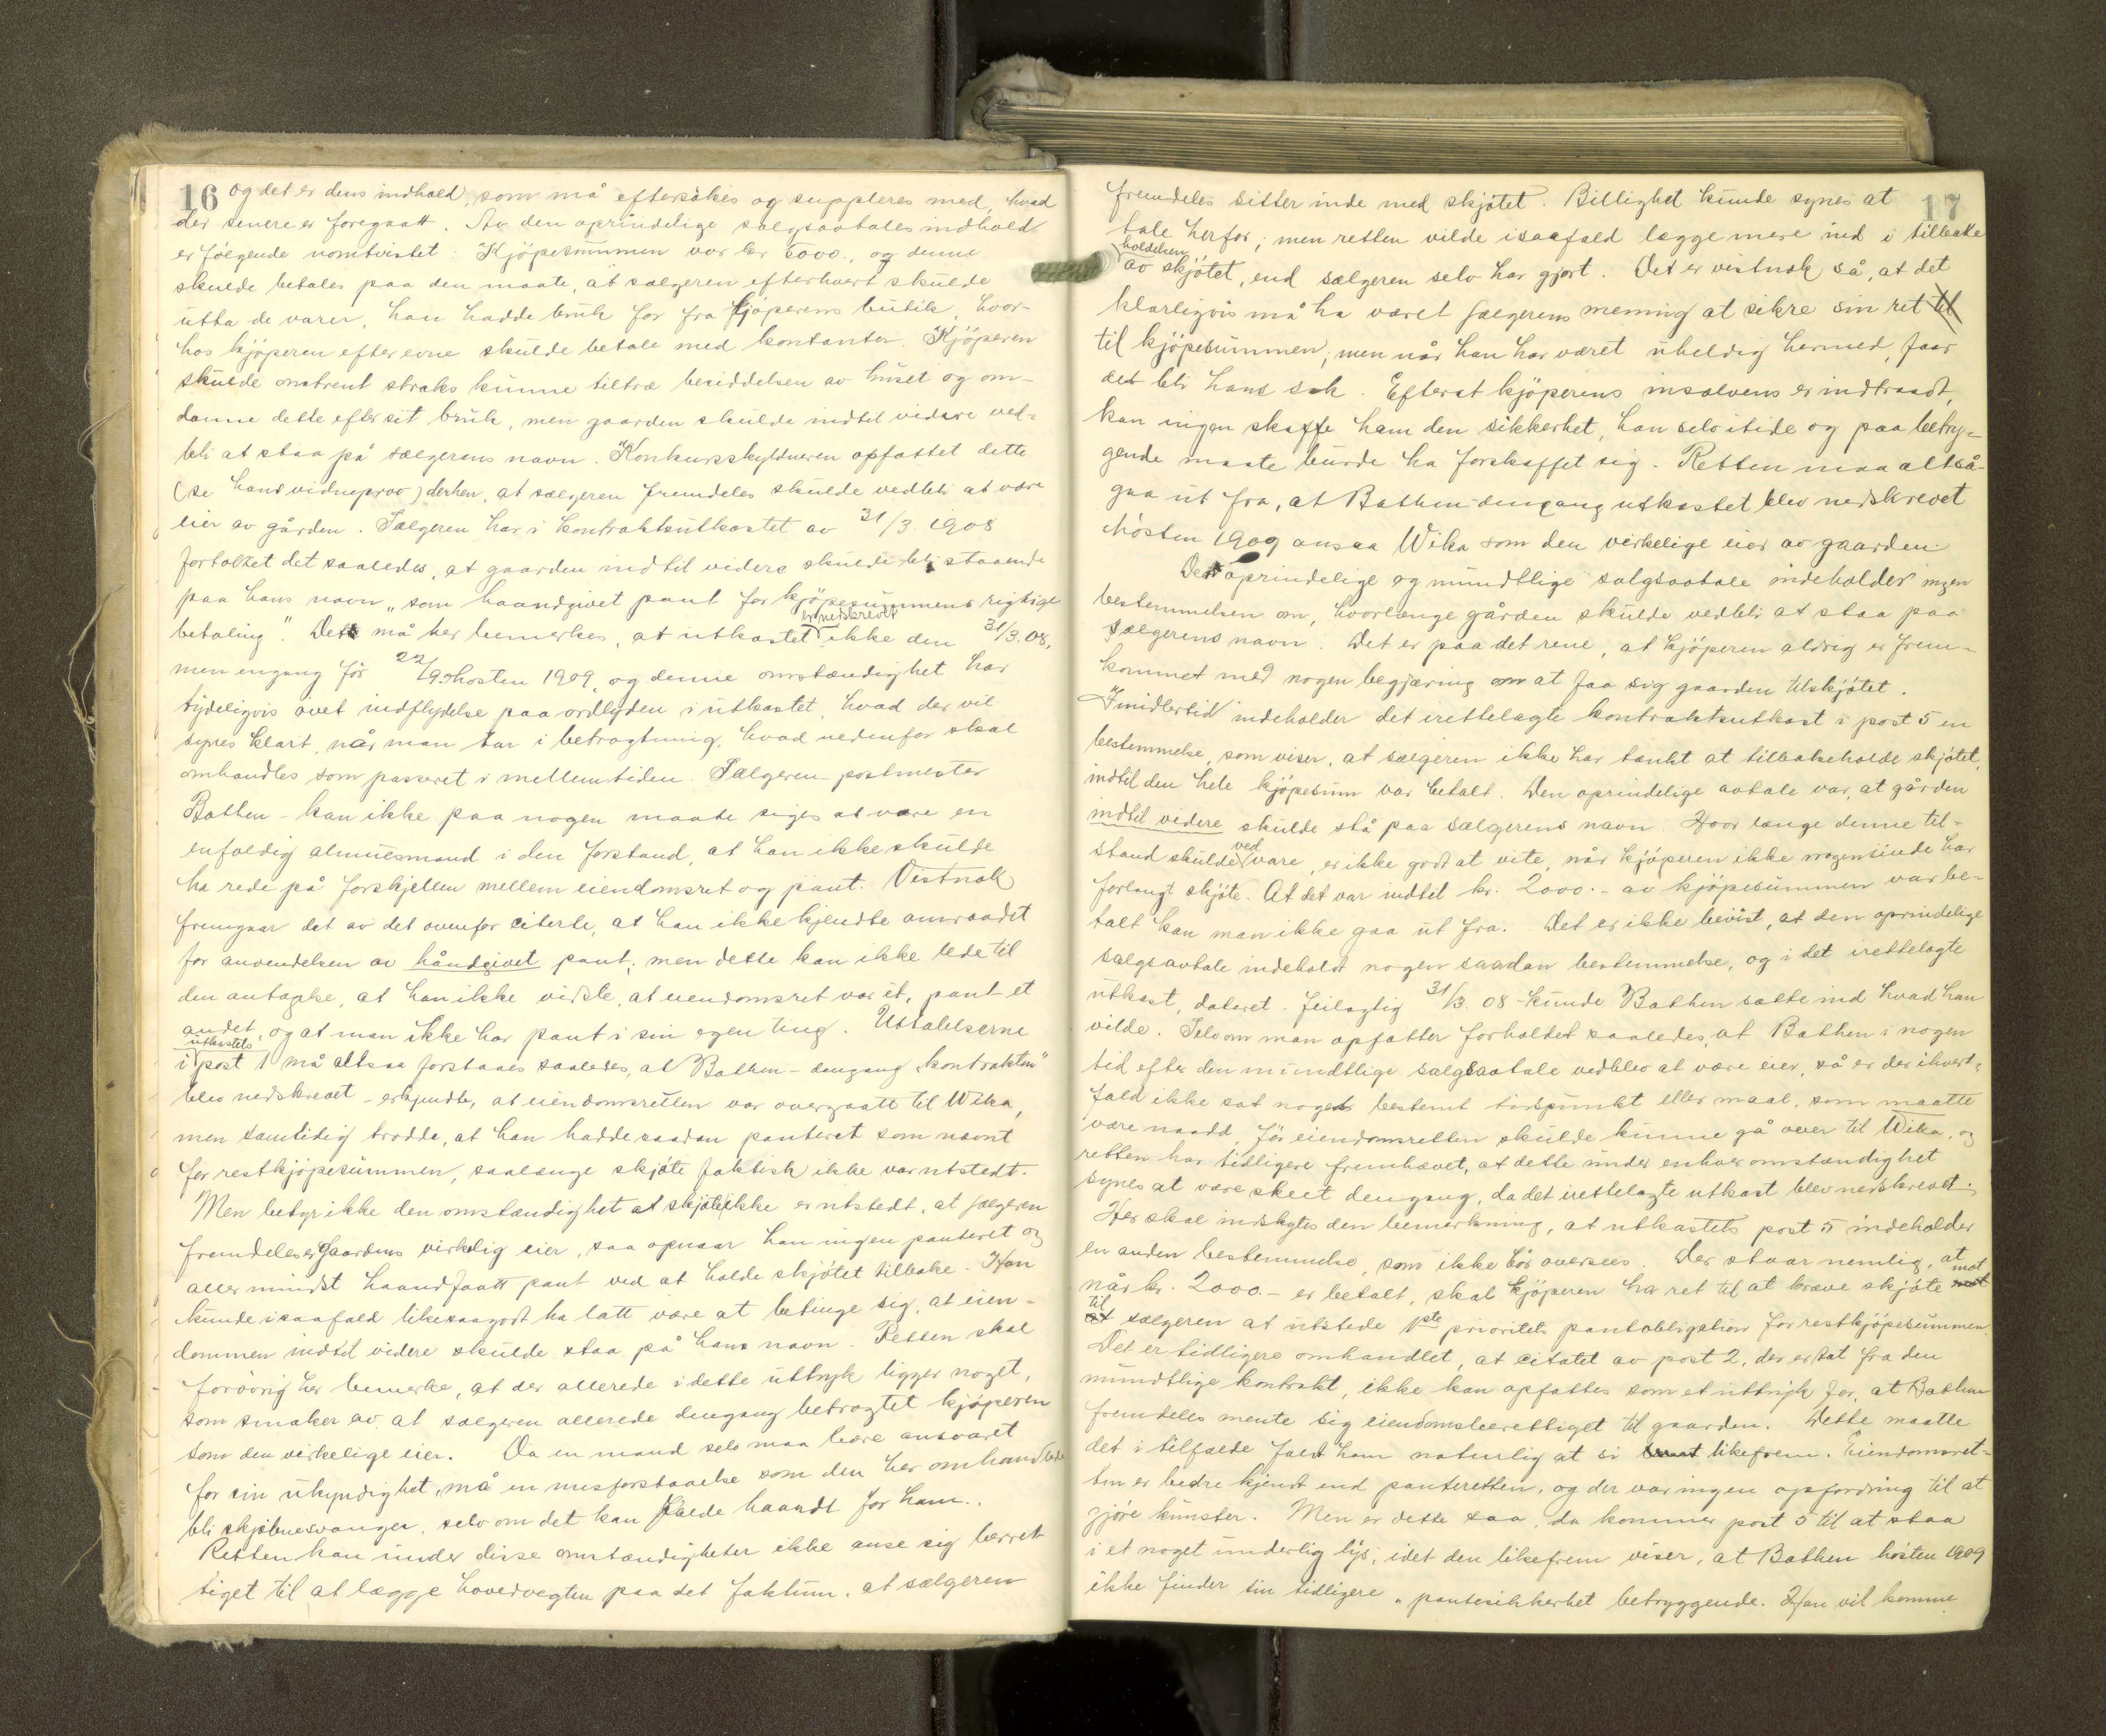 16 og det er dens indhold, som må eftersökes og suppleres med, hvad
der senere er foregaatt. Av den oprindelige salgsavtales indhold
er følgende uomtvistet: Kjöpesummen var kr 6000., og denne
skulde betales paa den maate, at sælgeren efterhvert skulde
utta de varer, han hadde bruk for fra kjöperens butik, hvor-
hos kjöperen efter evne skulde betale med kontanter. Kjöperen
skulde omtrent straks kunne tiltræ besiddelsen av huset og om-
danne dette efter sit bruk, men gaarden skulde indtil videre ved-
bli at staa på sælgerens navn. Konkursskyldneren opfattet dette
(se hans vidneprov) derhen, at sælgeren fremdeles skulde vedbli at være
eier av gården. Sælgeren har i kontraktsutkastet av 31/3 1908
fortolket det saaledes, at gaarden indtil videre skulde bli staaende
paa hans navn „som haandgivet pant for kjöpesummens rigtige
betaling". Det må her bemerkes, at utkastet er nedskrevet ikke den 31/3.08,
men engang før 22/9 høsten 1909, og denne omstændighet har
tydeligvis övet indflydelse paa ordlyden i utkastet, hvad der vil
synes klart, når man tar i betragtning, hvad nedenfor skal
omhandles som passeret i mellemtiden. Sælgeren - postmester
Bathen - kan ikke paa nogen maate siges at være en
enfoldig almuesmand i den forstand, at han ikke skulde
ha rede på forskjellen mellem eiendomsret og pant. Vistnok
fremgaar det av det ovenfor citerte, at han ikke kjendte omraadet
for anvendelsen av håndgivet pant; men dette kan ikke lede til
den antagelse, at han ikke vidste, at eiendomsret var et, pant et
andet, og at man ikke har pant i sin egen ting. Uttalelserne
i utkastets post 1 må altsaa forstaaes saaledes, at Bathen - dengang „kontrakten"
blev nedskrevet - erkjendte, at eiendomsretten var overgaatt til Wika,
men samtidig trodde, at han hadde saadan panteret som nævnt
for restkjöpesummen, saalænge skjöte faktisk ikke var utstedt.
Men betyr ikke den omstændighet at skjöte ikke er utstedt, at sælgeren
fremdeles er gaardens virkelig eier, saa opnaar han ingen panteret og
allermindst haandfaatt pant ved at holde skjötet tilbake. Han
kunde isaafald likesaagodt ha latt være at betinge sig, at eien-
dommen indtil videre skulde staa på hans navn. Retten skal
forövrig her bemerke, at der allerede i dette uttryk ligger noget,
som smaker av at sælgeren allerede dengang betragtet kjöperen
som den virkelige eier. Da en mand selv maa bære ansvaret
for sin ukyndighet, må en misforstaaelse som den her omhandlede
bli skjebnesvanger, selv om det kan falde haardt for ham.
Retten kan under disse omstændigheter ikke anse sig beret-
tiget til at lægge hovedvegten paa det faktum, at sælgeren
17
fremdeles sitter inde med skjötet. Billighet kunde synes at
tale herfor; men retten vilde isaafald lægge mere ind i tilbake
holdelsen av skjötet, end sælgeren selv har gjort. Det er vistnok så, at det
klarligvis må ha været sælgerens mening at sikre sin ret til
til kjöpesummen, men når han har været uheldig hermed, faar
det bli hans sak. Efterat kjöperens insolvens er indtraadt,
kan ingen skaffe ham den sikkerhet, han selv itide og paa betryg-
gende maate burde ha forskaffet sig. Retten maa altså
gaa ut fra, at Bathen dengang utkastet blev nedskrevet
hösten 1909 ansaa Wika som den virkelige eier av gaarden.
Den oprindelige og mundtlige salgsavtale indeholder ingen
bestemmelsen om, hvorlænge gården skulde vedbli at staa paa
sælgerens navn. Det er paa det rene, at kjöperen aldrig er frem-
kommet med nogen begjæring om at faa sig gaarden tilskjötet.
Imidlertid indeholder det irettelagte kontraktsutkast i post 5 en
bestemmelse, som viser, at sælgeren ikke har tænkt at tilbakeholde skjötet,
indtil den hele kjöpesum var betalt. Den oprindelige avtale var, at gården
indtil videre skulde stå paa sælgerens navn. Hvor længe denne til-
stand skulde vedvare, er ikke godt at vite, når kjöperen ikke nogensinde har
forlangt skjöte. At det var indtil kr. 2000.- av kjöpesummen var be-
talt kan man ikke gaa ut fra. Det er ikke bevist, at den oprindelige
salgsavtale indeholdt nogen saadan bestemmelse, og i det irettelagte
utkast, dateret - feilagtig 31/3 08 - kunde Bathen sætte ind hvad han
vilde. Selv om man opfatter forholdet saaledes, at Bathen i nogen
tid efter den mundtlige salgsavtale vedblev at være eier, så er der ihvert-
fald ikke sat noget bestemt tidspunkt eller maal, som maatte
være naadd, för eiendomsretten skulde kunne gå over til Wika, og
retten har tidligere fremhævet, at dette under enhver omstændighet
synes at være skeet dengang, da det irettelagte utkast blev nedskrevet.
Her skal indskytes den bemerkning, at utkastets post 5 indeholder
en anden bestemmelse, som ikke bör oversees. Der staar nemlig, at
når kr. 2000.- er betalt, skal kjöperen ha ret til at kræve skjöte mot
til sælgeren at utstede 1ste prioritets pantobligation for restkjöpesummen.
Det er tidligere omhandlet, at citatet av post 2, der er tat fra den
mundtlige kontrakt, ikke kan opfattes som et uttryk for, at Bathen
fremdeles mente sig eiendomsberettiget til gaarden. Dette maatte
det i tilfælde faldt ham naturlig at si likefrem. Eiendomsret-
ten er bedre kjendt end panteretten, og der var ingen opfordring til at
gjöre kunster. Men er dette saa, da kommer post 5 til at staa
i et noget underlig lys, idet den likefrem viser, at Bathen hösten 1909
ikke finder sin tidligere „pantesikkerhet betryggende. Han vil komme